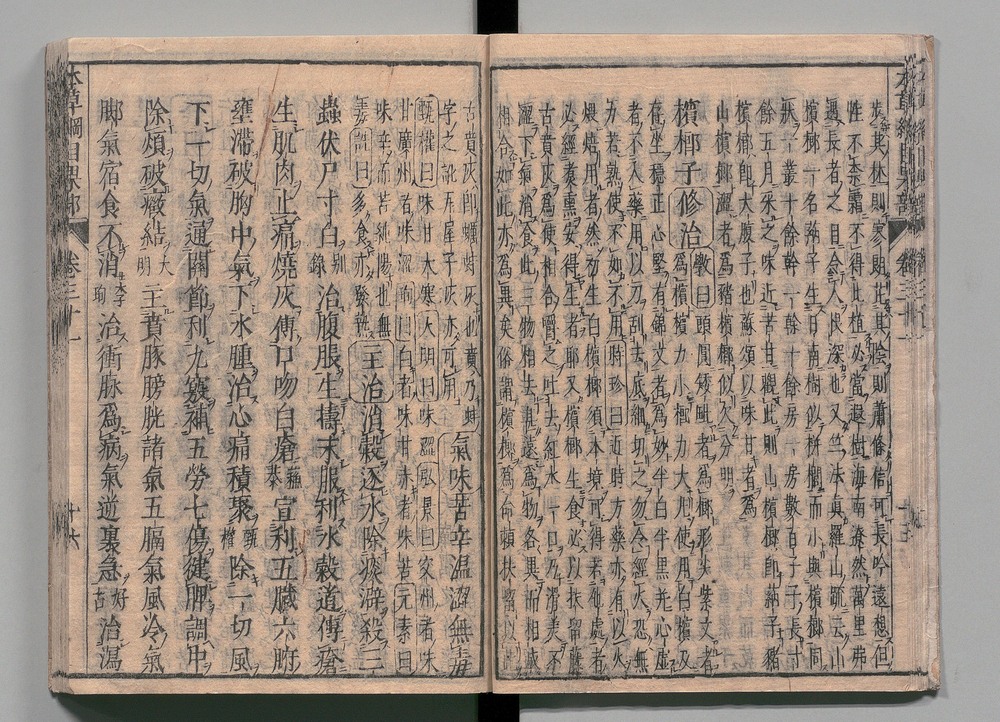 步其林則寥朗庇其陰則蕭條信可長吟遠想但
性不耐霜不得北植必當遐樹海南遼然萬里弗
遇長者之目令人恨深也又竺法真羅山疏云山
檳榔一名蒳子生日南樹似栟櫚而小與檳榔同
狀一叢十餘幹一幹十餘房一房數百子子長寸
餘五月采之味近苦甘觀此則山檳榔即蒳子豬
檳榔即大腹子也蘇頌以味甘者爲
山檳榔澀者爲豬檳榔似欠分明
檳榔子修治斅曰頭圓矮毗者爲榔形尖紫文者
爲檳檳力小榔力大凡使用白檳及
存坐穩正心堅有錦文者爲妙半白半黑并心虛
者不入藥用以刀刮去底細切之勿令經火恐無
力若熟使不如不用時珍曰近時方藥亦有以火
煨焙用者然初生白檳榔須本境可得若他處者
必經煮熏安得生者耶又檳榔生食必以扶留藤
古賁灰爲使相合嚼之吐去紅水一口乃滑美不
澀下氣消食此三物相去甚遠爲物各異而相成
相合如此亦爲異矣俗謂檳榔爲命賴扶留以此
古賁灰即蠣蚌灰也賁乃蚌
字之訛瓦屋子灰亦可用氣味苦辛溫澀無毒
甄權曰味甘大寒大明曰味澀弘景曰交州者味
甘廣州者味澀珣曰白者味甘赤者味苦元素曰
味辛而苦純陽也無
毒詵曰多食亦發熱主治消穀逐水除痰澼殺三
蟲伏尸寸白別錄治腹脹生搗末服利水穀道傅瘡
生肌肉止痛燒灰傅口吻白瘡蘇恭宣利五臟六腑
壅滯破胸中氣下水腫治心痛積聚甄權除一切風
下一切氣通關節利九竅補五勞七傷健脾調中
除煩破癥結大明主賁豚膀胱諸氣五膈氣風冷氣
脚氣宿食不消李珣治衝脉爲病氣逆裏急好古治瀉
本草綱目果部 卷三十一 十六